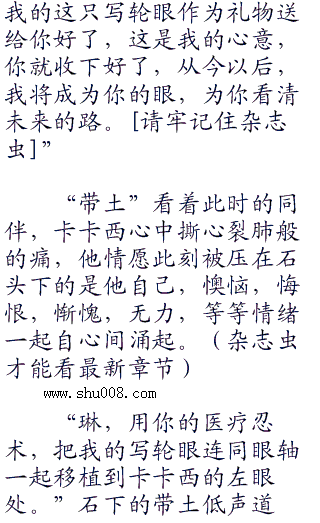 我的这只写轮眼作为礼物送
给你好了，这是我的心意，
你就收下好了，从今以后，
我将成为你的眼，为你看清
未来的路。[请牢记住杂志
虫]”
“带土”看着此时的同
伴，卡卡西心中撕心裂肺般
的痛，他情愿此刻被压在石
头下的是他自己，懊恼，悔
恨，惭愧，无力，等等情绪
一起自心间涌起。（杂志虫
才能看最新章节）
www.shu008.com
“琳，用你的医疗忍
术，把我的写轮眼连同眼轴
一起移植到卡卡西的左眼
处。”石下的带土低声道